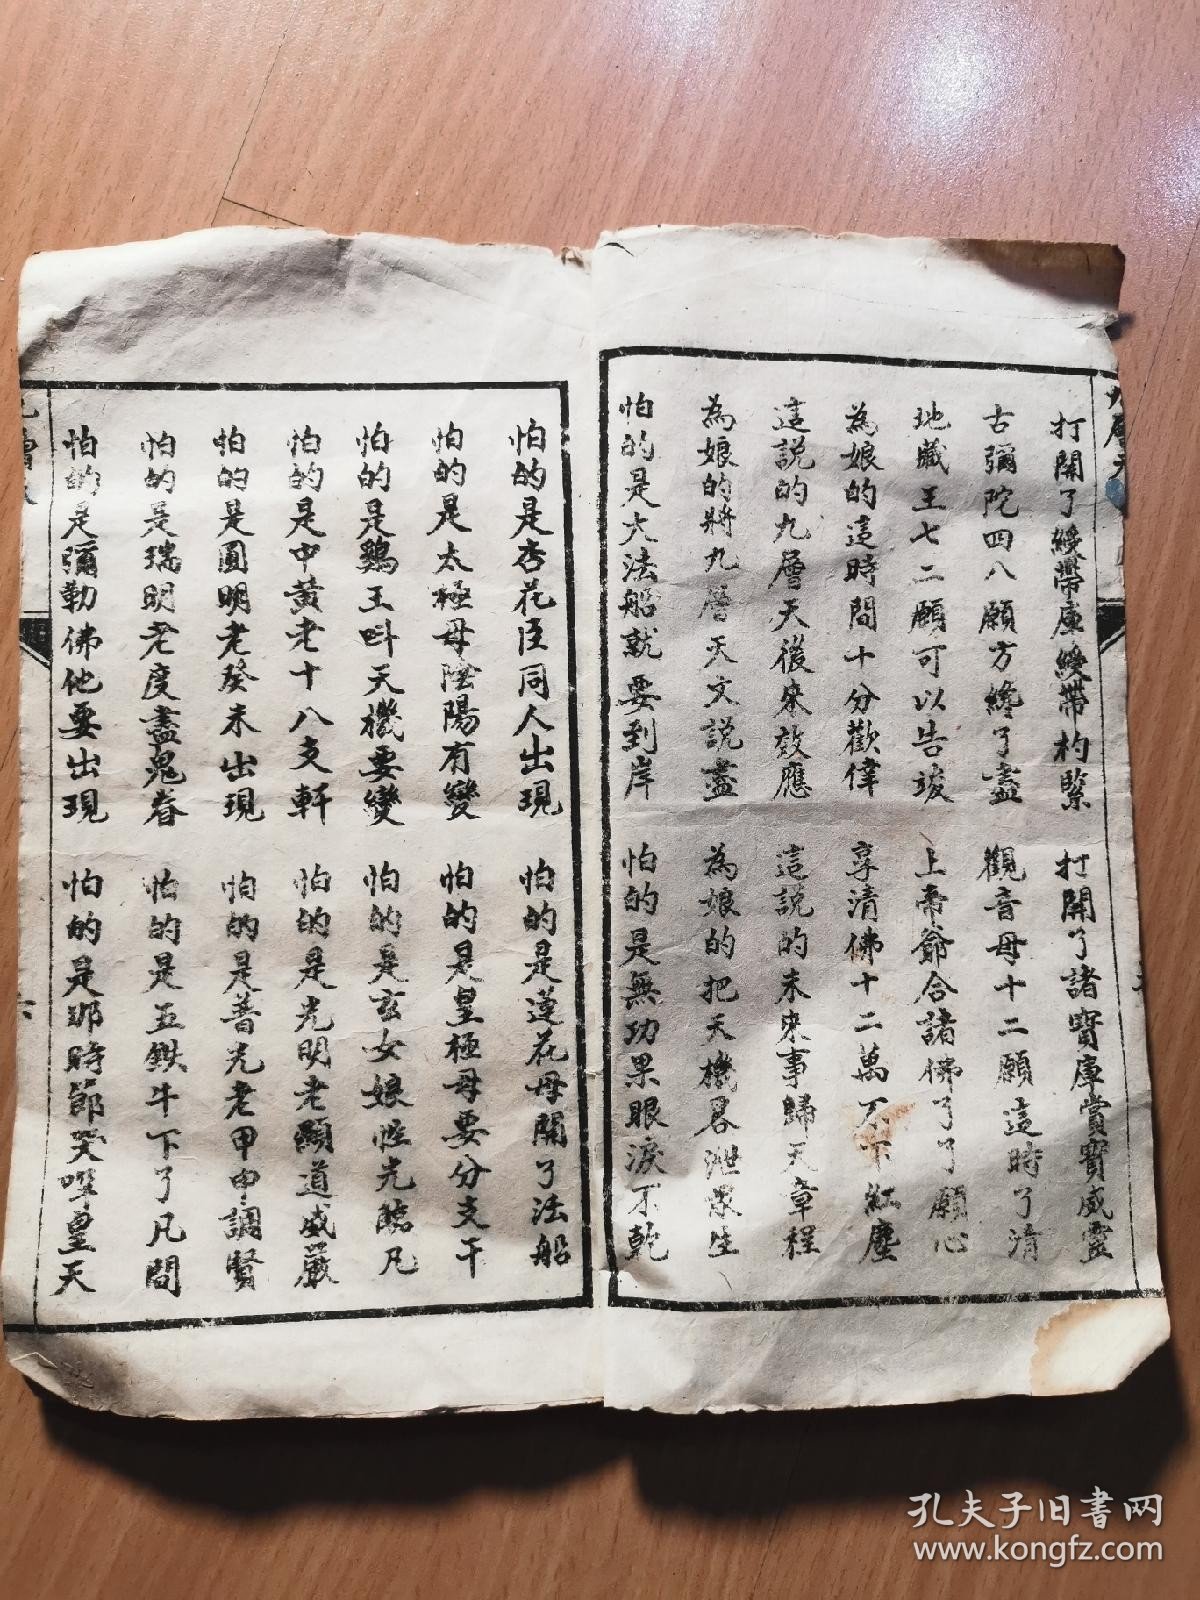 打開了綬帶庫綬帶杓緊 打開了諸寶庫賞寶威靈
古彌陀四八願方纔了盡 觀音母十二願這時了清
地藏王七二願可以告竣 上帝爺合諸佛了了願心
為娘的這時間十分歡偉 享清佛十二萬不下紅塵
這說的九層天後來效應 這說的未來事歸天章程
為娘的將九層天文說盡 為娘的把天機畧泄眾生
怕的是大法船就要到岸 怕的是無功果眼淚不乾
怕的是杏花臣同人出現 怕的是蓮花母開了法船
怕的是太極母陰陽有變 怕的是皇極母要分支干
怕的是鷄王呌天機要變 怕的是玄女娘性光臨凡
怕的是中黃老十八支軒 怕的是光明老顯道威嚴
怕的是圓明老癸未出現 怕的是普光老甲申調賢
怕的是瑞明老度盡鬼眷 怕的是五鉄牛下了凡間
怕的是彌勒佛他要出現 怕的是那時節哭呼皇天
六
孔夫子旧書网
www.kongfz.com